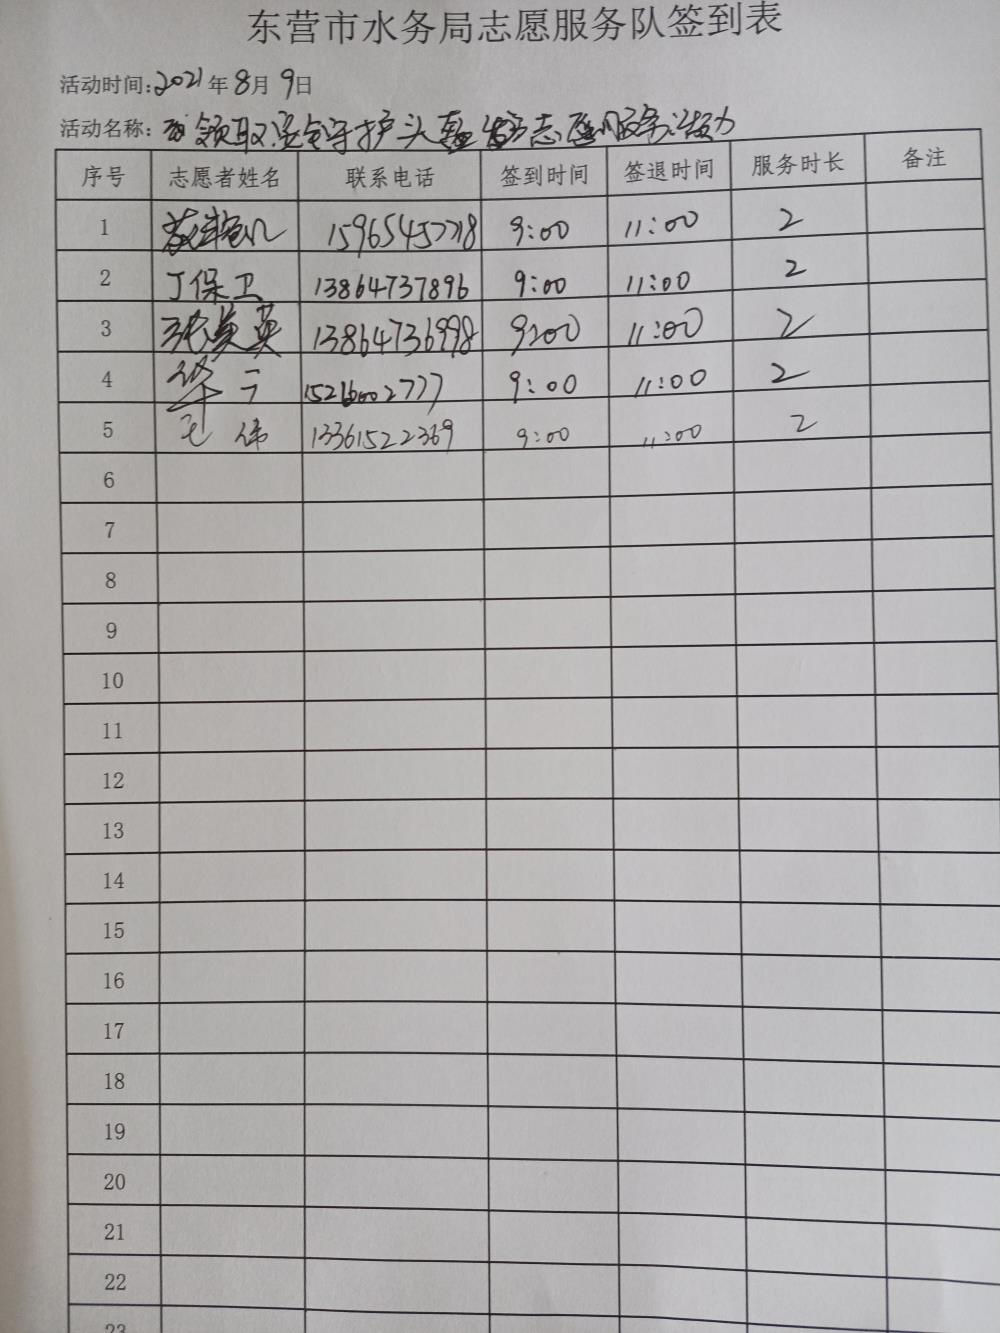 东营市水务局志愿服务队签到表
活动时间:2021年8月9日
活动名称: 领取 安全守护头盔 志愿服务活动
序号 志愿者姓名 联系电话 签到时间 签退时间 服务时长 备注
1 15965457718 9:00 11:00 2
2 丁保卫 13864737896 9:00 11:00 2
3 张美英 13864736998 9:00 11:00 2
4 15216002777 9:00 11:00 2
5 毛伟 13361522369 9:00 11:00 2
6
7
8
9
10
11
12
13
14
15
16
17
18
19
20
21
22
23